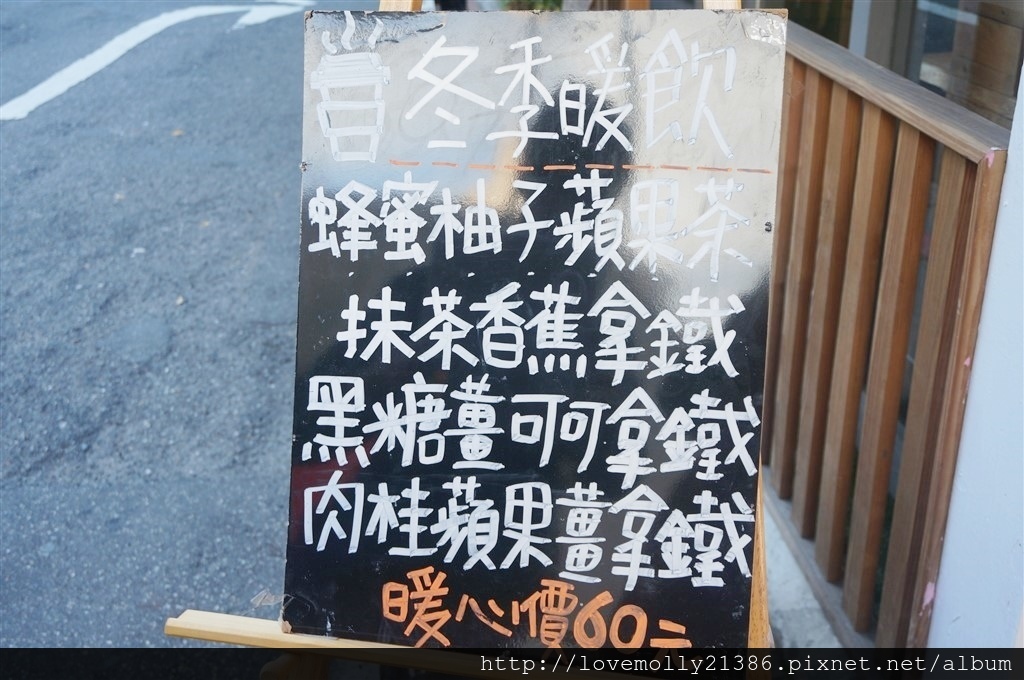 冬季暖飲
蜂蜜柚子蘋果茶
抹茶香蕉拿鐵
黑糖薑可可拿鐵
肉桂蘋果薑拿鐵
暖心價60元
http://lovemolly21386.pixnet.net/album